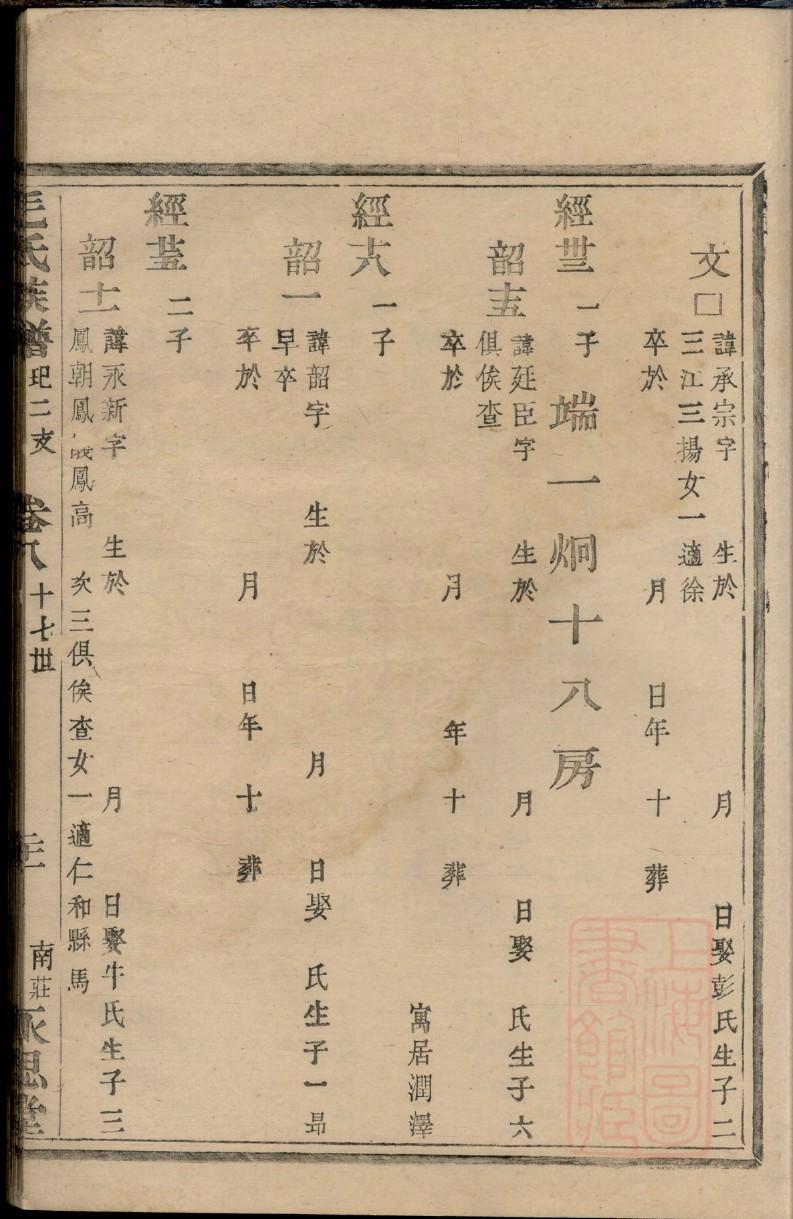 文□ 諱承宗字 生於 月 日娶彭氏生子二
三江三揚女一適徐
卒於 月 日年 十 葬
經卅三 一子 端一炯十八房
韶十五 諱廷臣字 生於 月 日娶 氏生子六
俱俟查
卒於 月 年 十 葬
寓居潤澤
經十六 一子
韶一 諱韶字 生於 月 日娶 氏生子一昻
早卒
卒於 月 日年 十 葬
經 二子
韶十一 諱永新字 生於 月 日娶牛氏生子三
鳳朝鳳儀鳳高 次三俱俟查女一適仁和縣馬
毛氏族譜 玘二支 卷八 十七世 南莊永思堂
上海圖書館藏